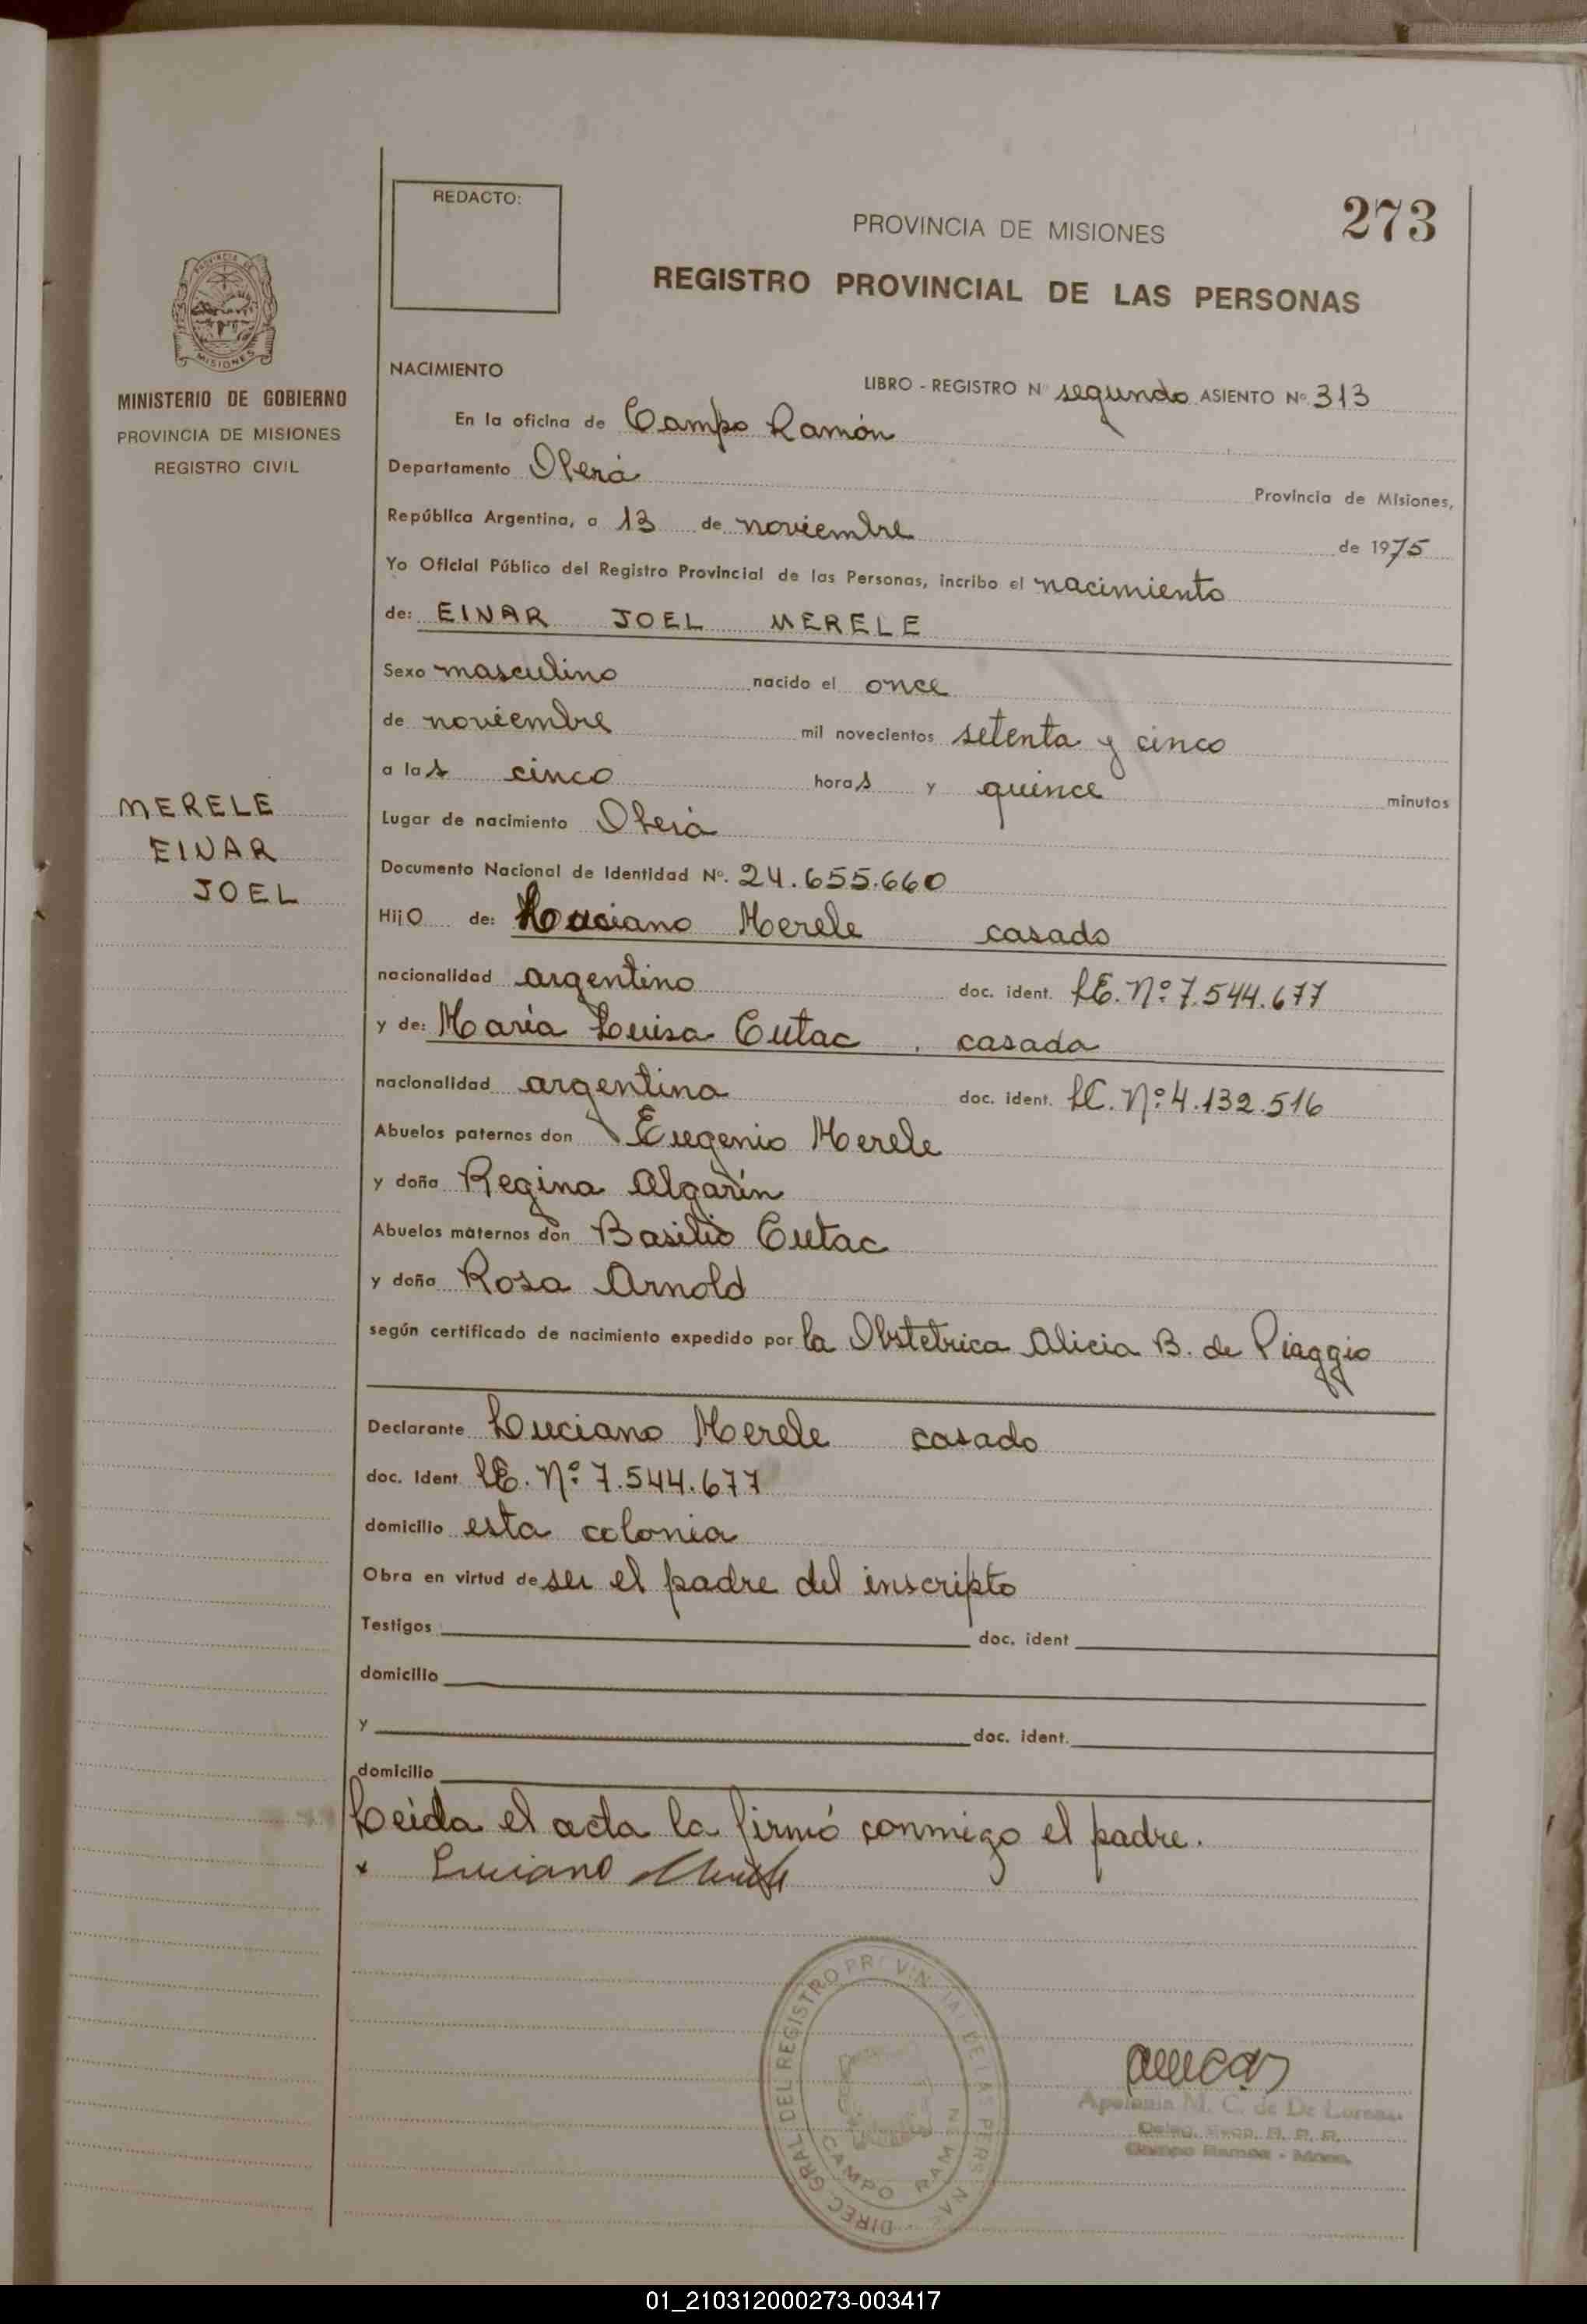 REDACTO:
PROVINCIA DE MISIONES
273
REGISTRO PROVINCIAL DE LAS PERSONAS
PROVINCIA DE
MISIONES
MINISTERIO DE GOBIERNO
PROVINCIA DE MISIONES
REGISTRO CIVIL
NACIMIENTO
LIBRO - REGISTRO Nº segundo ASIENTO Nº 313
En la oficina de Campo Ramón
Departamento Oberá Provincia de Misiones,
República Argentina, a 13 de noviembre de 1975
Yo Oficial Público del Registro Provincial de las Personas, incribo el nacimiento
de: EINAR JOEL MERELE
Sexo masculino nacido el once
de noviembre mil novecientos setenta y cinco
a las cinco horas y quince minutos
MERELE
EINAR
JOEL
Lugar de nacimiento Oberá
Documento Nacional de Identidad Nº. 24.655.660
Hijo de: Luciano Merele casado
nacionalidad argentino doc. ident. LE. Nº 7.544.677
y de: María Luisa Cutac, casada
nacionalidad argentina doc. ident. LC. Nº 4.132.516
Abuelos paternos don Eugenio Merele
y doña Regina Algarín
Abuelos maternos don Basilio Cutac
y doña Rosa Arnold
según certificado de nacimiento expedido por la Obstetrica Alicia B. de Piaggio
Declarante Luciano Merele casado
doc. Ident LE. Nº 7.544.677
domicilio esta colonia
Obra en virtud de ser el padre del inscripto
Testigos doc. ident
domicilio
y doc. ident.
domicilio
Leída el acta la firmó conmigo el padre.
x Luciano Merele
DIREC. GRAL. DEL REGISTRO PROVINCIAL DE LAS PERSONAS
CAMPO RAMON
Apolonia M. C. de De Lorenz
R. P. P.
Campo Ramon - Mnes.
01_210312000273-003417